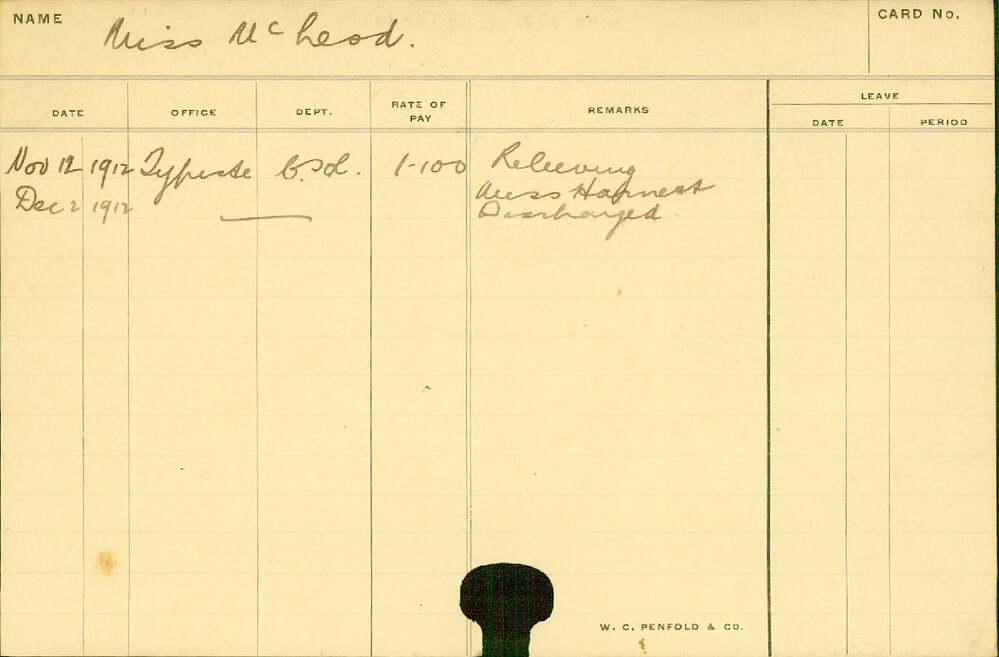 NAME Miss McLeod. CARD No.
DATE OFFICE DEPT. RATE OF PAY REMARKS LEAVE
DATE PERIOD
Nov 12 1912 Typiste 1-100 Relieving
Miss Harnest
Dec 2 1912 Discharged
W. C. PENFOLD & CO.